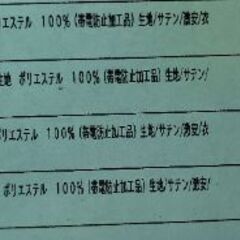 リエステル 100% (帯電防止加工品) 生地/サテン/激安/衣
生地 ポリエステル 100% (帯電防止加工品) 生地/サテン/
リエステル 100% (帯電防止加工品) 生地/サテン/激安/衣
ポリエステル 100% (帯電防止加工品) 生地/サテン/激安/